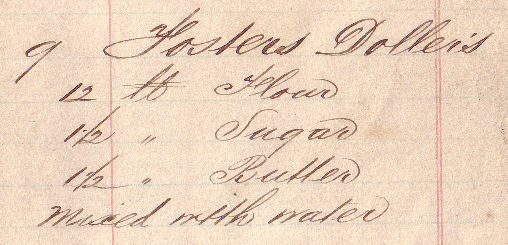 9 Fosters Dollers
12 lb Flour
1 1/2 " Sugar
1 1/2 " Butter
Mixed with water